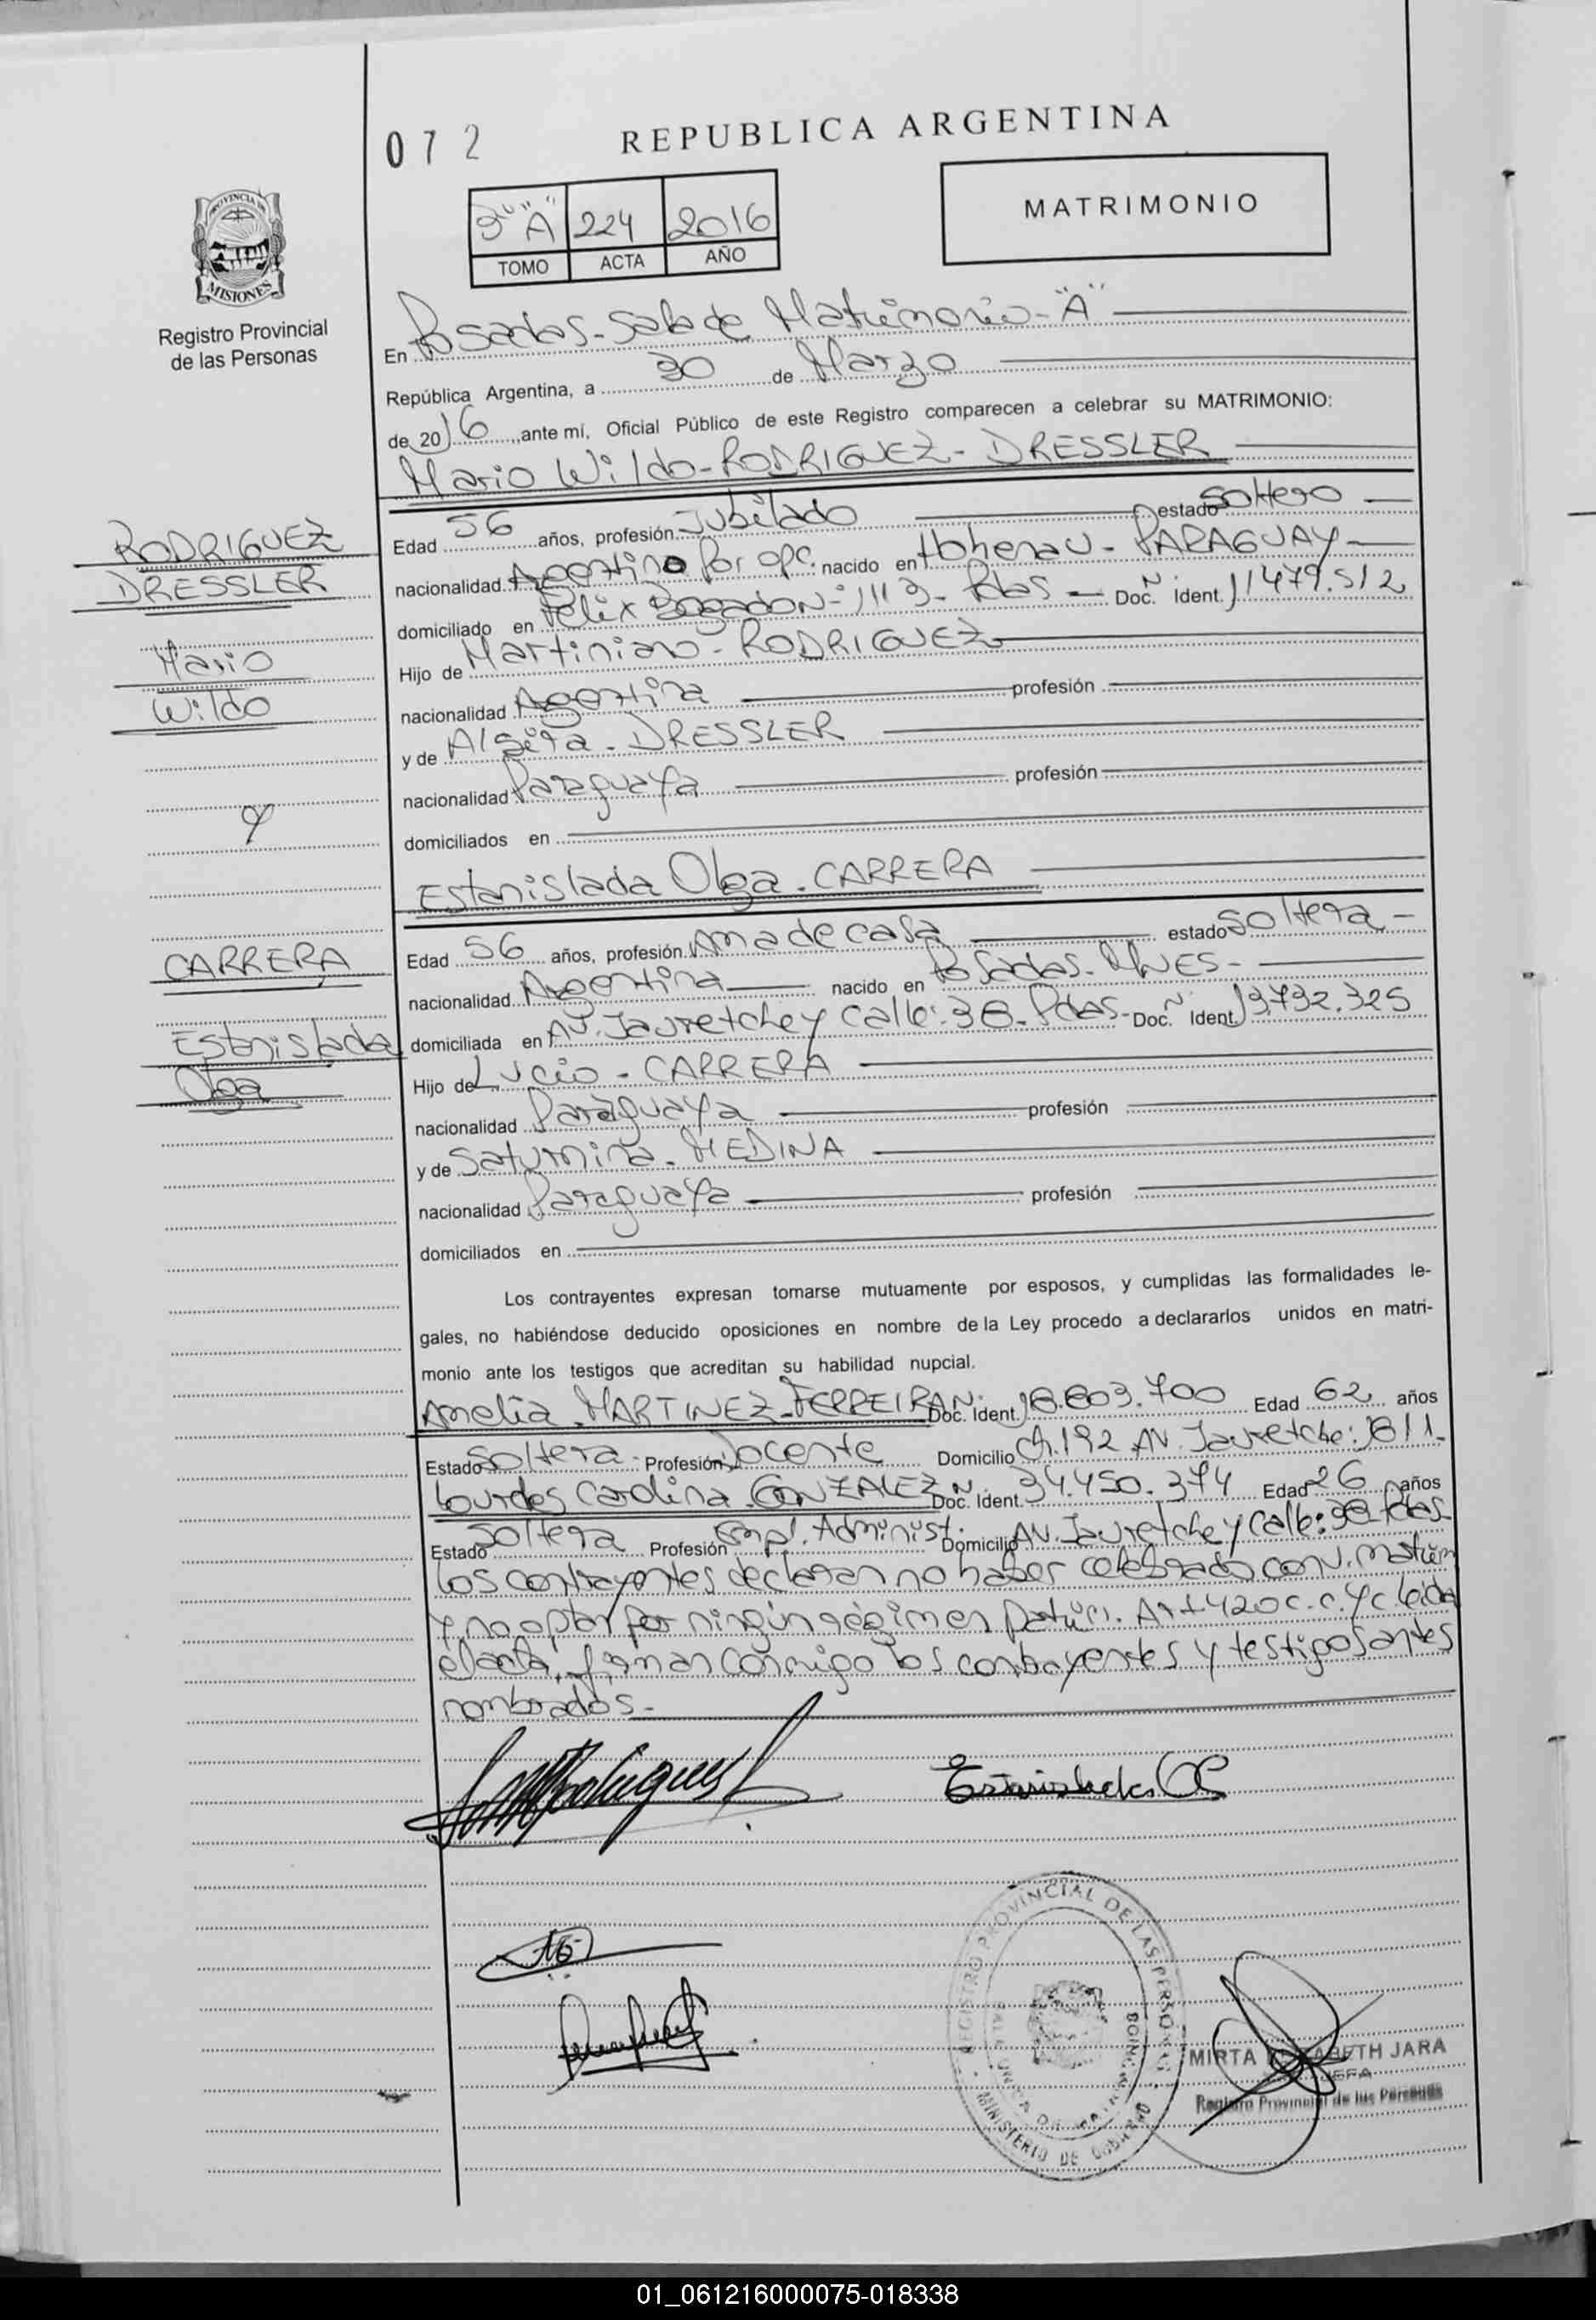 072
REPUBLICA ARGENTINA
MATRIMONIO
"A" 224 2016
TOMO ACTA AÑO
PROVINCIA DE
MISIONES
Registro Provincial
de las Personas
En Posadas - Sala de Matrimonio - "A"
República Argentina, a 30 de Marzo
de 2016, ante mí, Oficial Público de este Registro comparecen a celebrar su MATRIMONIO:
Mario Wildo - RODRIGUEZ - DRESSLER
RODRIGUEZ
DRESSLER
Mario
Wildo
y
CARRERA
Estanislada
Olga
Edad 56 años, profesión Jubilado estado Soltero
nacionalidad Argentino Por opc. nacido en Hohenau - PARAGUAY
domiciliado en Felix Bogado Nº 1113 - Pdas - Doc. Nº Ident. 11479.512
Hijo de Martiniano - RODRIGUEZ
nacionalidad Argentina profesión
y de DRESSLER
nacionalidad Paraguaya profesión
domiciliados en
Estanislada Olga - CARRERA
Edad 56 años, profesión Ama de casa estado Soltera
nacionalidad Argentina nacido en Posadas - Mnes -
domiciliada en Av. Jauretche y Calle: 38 - Pdas - Doc. Nº Ident. 13.732.325
Hijo de Lucio - CARRERA
nacionalidad Paraguaya profesión
y de Saturnina - MEDINA
nacionalidad Paraguaya profesión
domiciliados en
Los contrayentes expresan tomarse mutuamente por esposos, y cumplidas las formalidades le-
gales, no habiéndose deducido oposiciones en nombre de la Ley procedo a declararlos unidos en matri-
monio ante los testigos que acreditan su habilidad nupcial.
Amelia - MARTINEZ - FERREIRA Doc. Nº Ident. 18.803.700 Edad 62 años
Estado Soltera - Profesión Docente Domicilio Ch. 192 AV. Jauretche: 1811-
Lourdes Carolina - GONZALEZ Doc. Nº Ident. 34.450.374 Edad 26 años
Estado Soltera Profesión Empl. Administ. Domicilio AV. Jauretche y Calle: 38 - Pdas -
Los contrayentes declaran no haber celebrado conv. matrim
y no optar por ningún régimen patrim. Art 420 c.c. y c. Leida
el acta, firman conmigo los contrayentes y testigos antes
nombrados -
REGISTRO PROVINCIAL DE LAS PERSONAS
MINISTERIO DE GOBIERNO
MIRTA ELIZABETH JARA
JEFA
Registro Provincial de las Personas
01_061216000075-018338